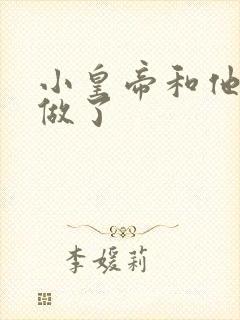 小皇帝和他
做了
李媛莉